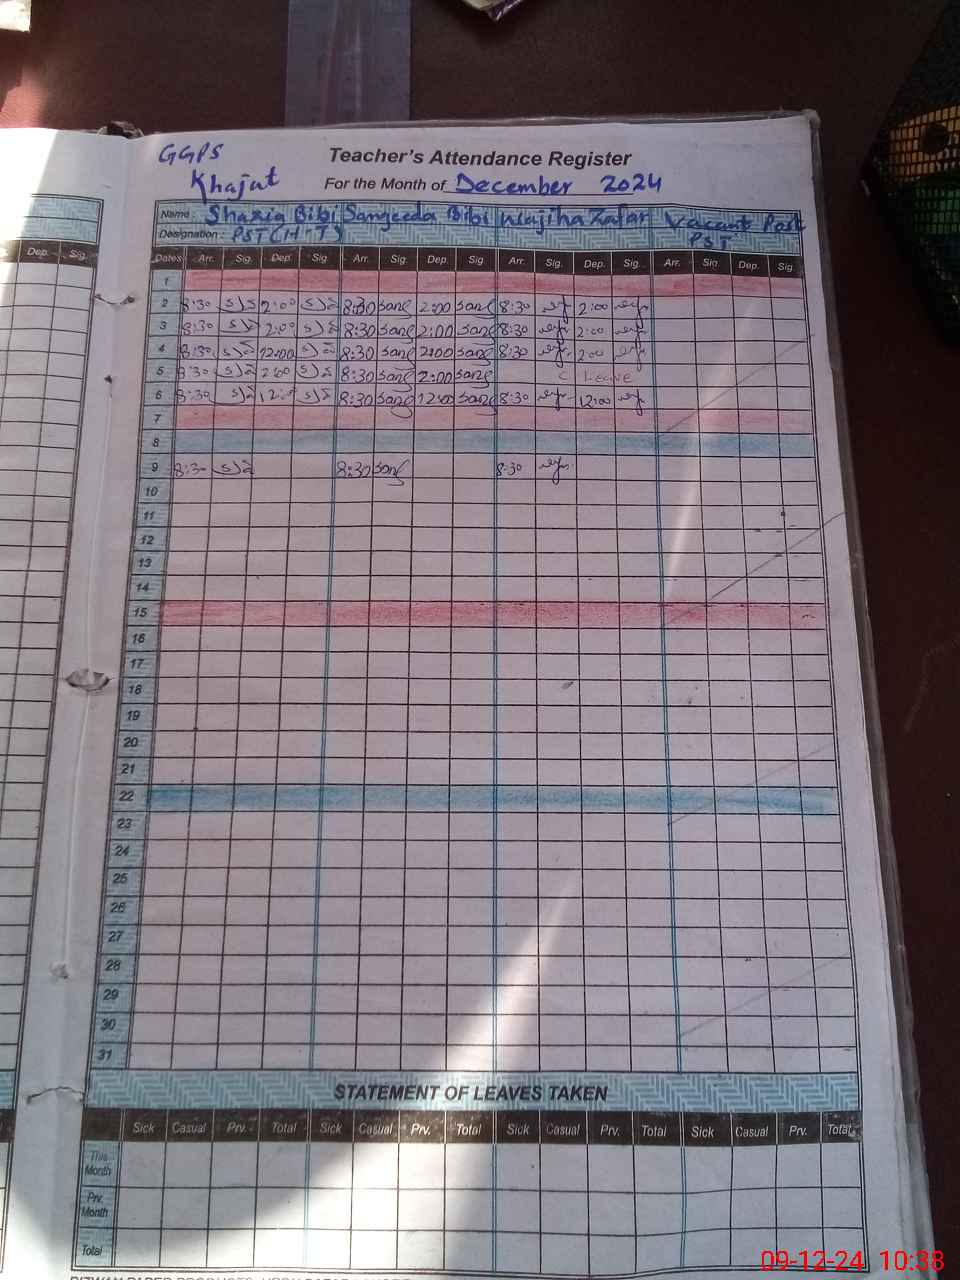 GGPS
Teacher's Attendance Register
Khajut
For the Month of December 2024
Name : Shazia Bibi Sangeeda Bibi Wajiha Zafar Vacant Post
Designation : PST (H-T) PST
Dep. Sig.
Dates Arr. Sig. Dep. Sig. Arr. Sig. Dep. Sig. Arr. Sig. Dep. Sig. Arr. Sig. Dep. Sig.
1
2 8:30 2:00 8:30 Sang 2:00 Sang 8:30 2:00
3 8:30 2:00 8:30 Sang 2:00 Sang 8:30 2:00
4 8:30 12:00 8:30 Sang 2:00 Sang 8:30 2:00
5 8:30 2:00 8:30 Sang 2:00 Sang C Leave
6 8:30 8:30 Sang 12:00 Sang 8:30 12:00
7
8
9 8:30 8:30 Sang 8:30
10
11
12
13
14
15
16
17
18
19
20
21
22
23
24
25
26
27
28
29
30
31
STATEMENT OF LEAVES TAKEN
Sick Casual Prv. Total Sick Casual Prv. Total Sick Casual Prv. Total Sick Casual Prv. Total
This
Month
Prv.
Month
Total
09-12-24 10:38